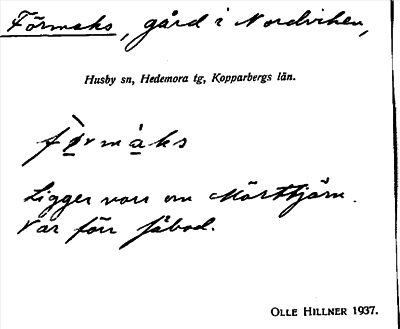 Förmaks, gård i Nordviken,
Husby sn, Hedemora tg, Kopparbergs län.
fö̀rmàks
Ligger norr om Mörttjärn.
Var förr fäbod.
OLLE HILLNER 1937.